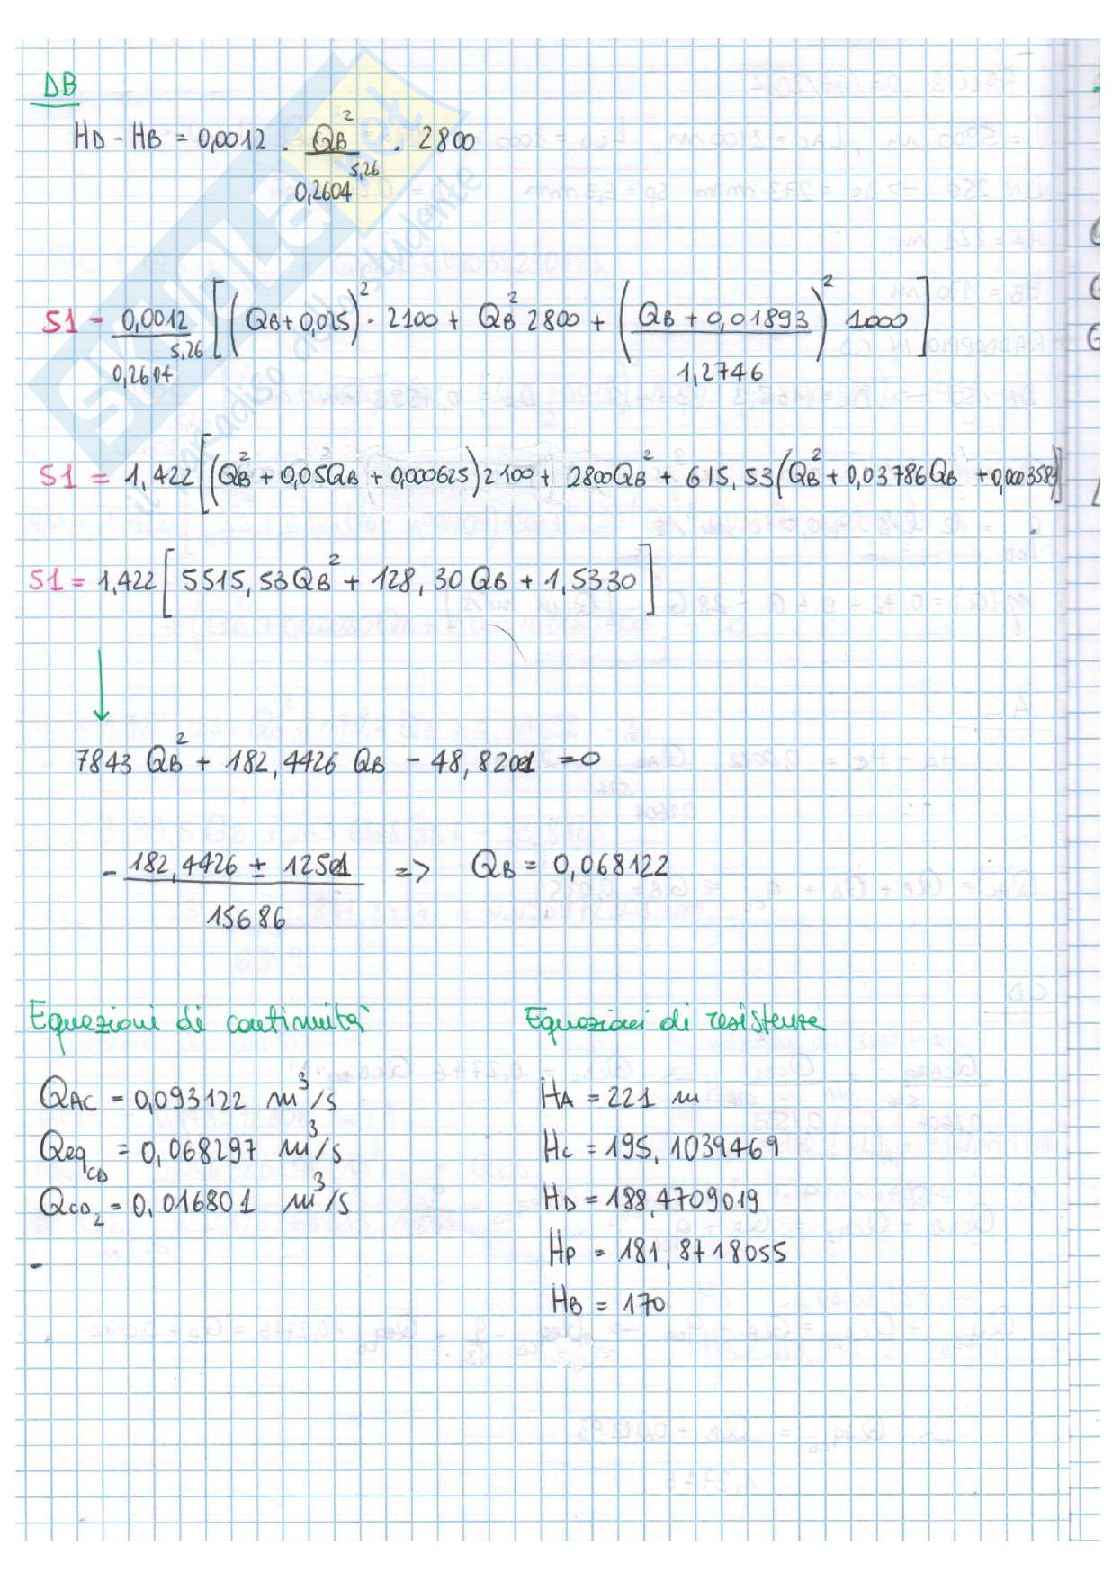 DB
HD - HB = 0,0012 · QB² / 0,2604^5,26 · 2800
51 = 0,0012 / 0,2604^5,26 [(QB + 0,025)² · 2100 + QB² 2800 + (QB + 0,01893 / 1,2746)² 1000]
51 = 1,422 [(QB² + 0,05QB + 0,000625) 2100 + 2800QB² + 615,53 (QB² + 0,03786QB + 0,000358)]
51 = 1,422 [5515,53QB² + 128,30 QB + 1,5330]
7843 QB² + 182,4426 QB - 48,8201 = 0
- 182,4426 ± 1251 / 15686 => QB = 0,068122
Equazioni di continuità
QAC = 0,093122 m³/s
QeqCD = 0,068297 m³/s
QCD2 = 0,016801 m³/s
Equazioni di resistenza
HA = 221 m
HC = 195,1039469
HD = 188,4709019
HP = 181,8718055
HB = 170